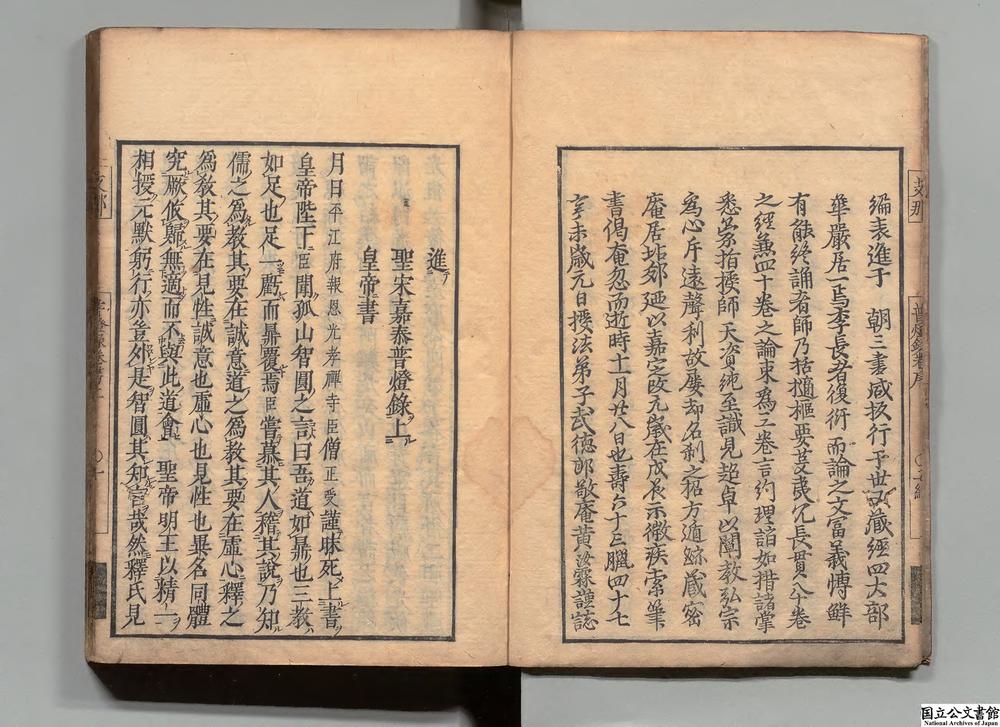 編表進于　朝三書咸板行于世又藏經四大部
華嚴居一焉李長者復衍而論之文富義博鮮
有能終誦者師乃括擿樞要芟夷冗長貫八十卷
之經無四十卷之論束為三卷言約理詣如指諸掌
悉蒙指授師天資純至識見超卓以闡教弘宗
為心斥遠聲利故屢却名刹之招方遁跡藏密
庵居坫郊廼以嘉定改元歲在戊辰示微疾索筆
書偈奄忽而逝時十一月廿八日也壽六十三臘四十七
辛未歲元日授法弟子武德郎敬庵黃汝霖謹誌
進
聖宋嘉泰普燈錄上
皇帝書
月日平江府報恩光孝禪寺臣僧正受謹昧死上書
皇帝陛下臣聞孤山智圓之言曰吾道如鼎也三教
如足也足一虧而鼎覆焉臣嘗慕其人稽其說乃知
儒之為教其要在誠意道之為教其要在虛心釋之
為教其要在見性誠意也虛心也見性也異名同體
究厥攸歸無適而不與此道會　聖帝明王以精一
相授元默躬行亦豈外是智圓其知言哉然釋氏見
国立公文書館
National Archives of Japan